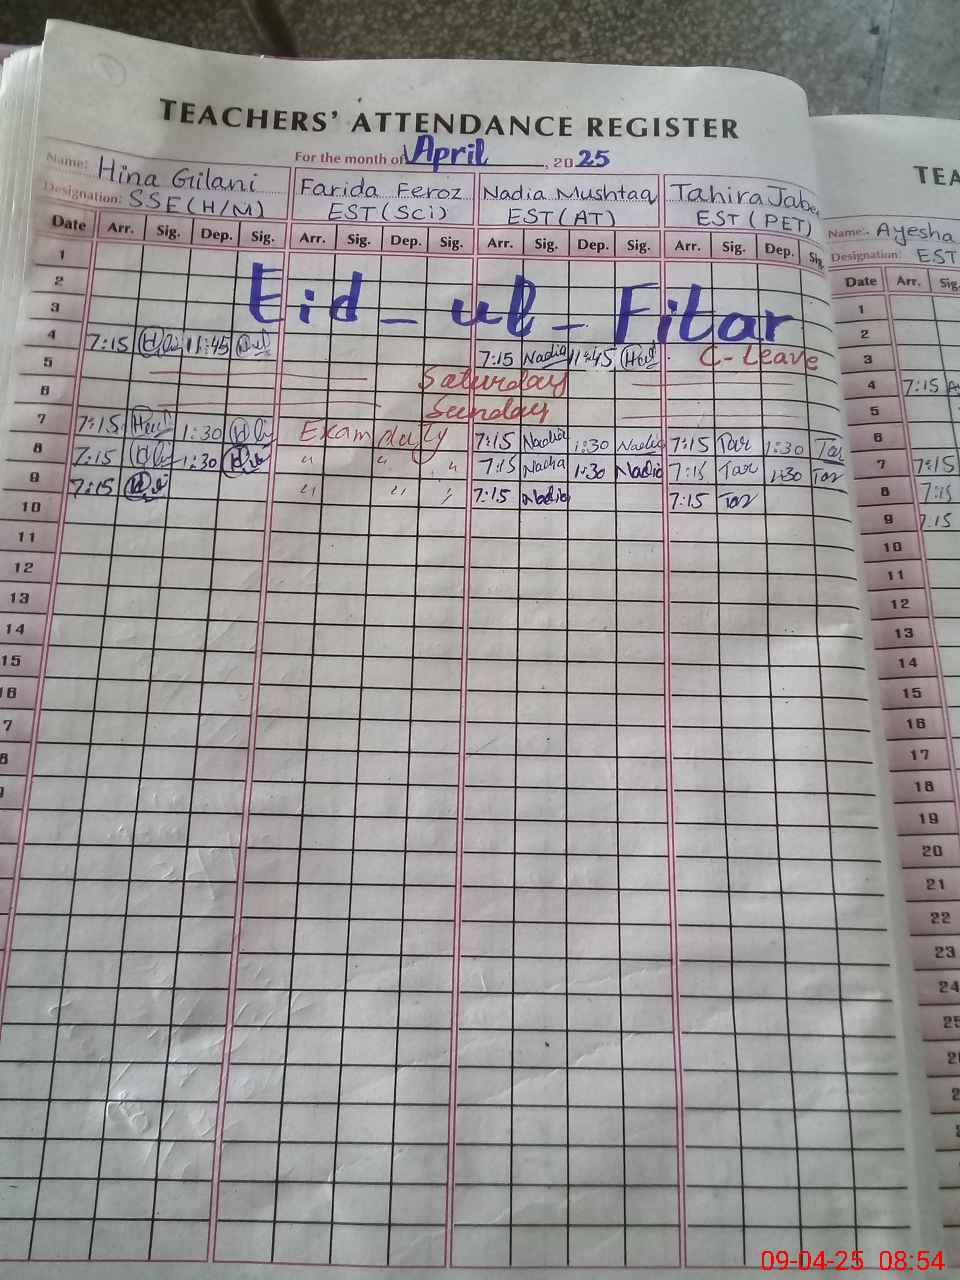 TEACHERS' ATTENDANCE REGISTER
For the month of April, 2025
Name: Hina Gilani Farida Feroz Nadia Mushtaq Tahira Jabe
Designation: SSE(H/M) EST(Sci) EST(AT) EST(PET)
Date Arr. Sig. Dep. Sig. Arr. Sig. Dep. Sig. Arr. Sig. Dep. Sig. Arr. Sig. Dep. Sig.
1
2 Eid-ul-Fitar
3
4 7:15 11:45 7:15 Nadia 11:45 C-Leave
5 Saturday
6 Sunday
7 7:15 1:30 Exam duty 7:15 Nadia 1:30 Nadia 7:15 Tar 1:30 Tar
8 7:15 1:30 " " " 7:15 Nadia 1:30 Nadia 7:15 Tar 1:30 Tar
9 7:15 " " " 7:15 Nadia 7:15 Tar
10
11
12
13
14
15
16
7
8
9
TEA
Name: Ayesha
Designation: EST
Date Arr. Sig.
1
2
3
4 7:15
5
6
7 7:15
8 7:15
9 7:15
10
11
12
13
14
15
16
17
18
19
20
21
22
23
24
25
2
2
2
09-04-25 08:54